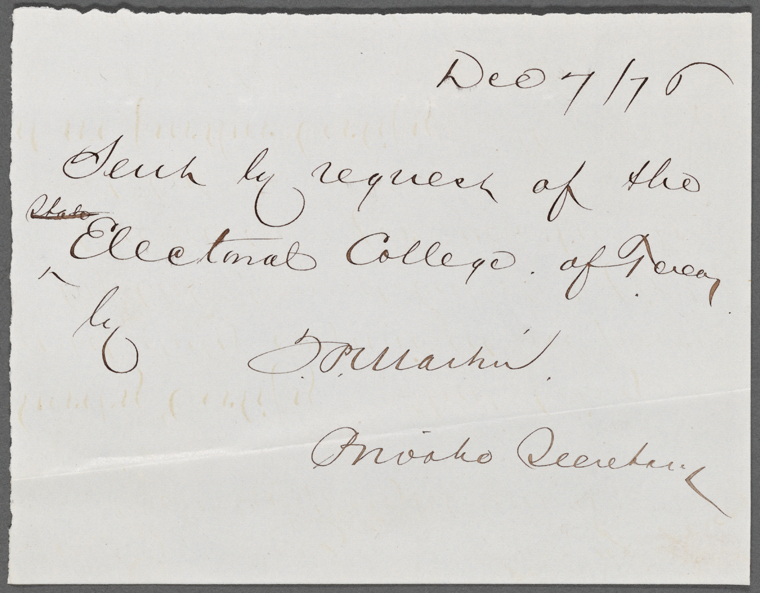 Dec 7/76
Sent by request of the
State
Electoral College of Texas
by
P. Martin.
Private Secretary